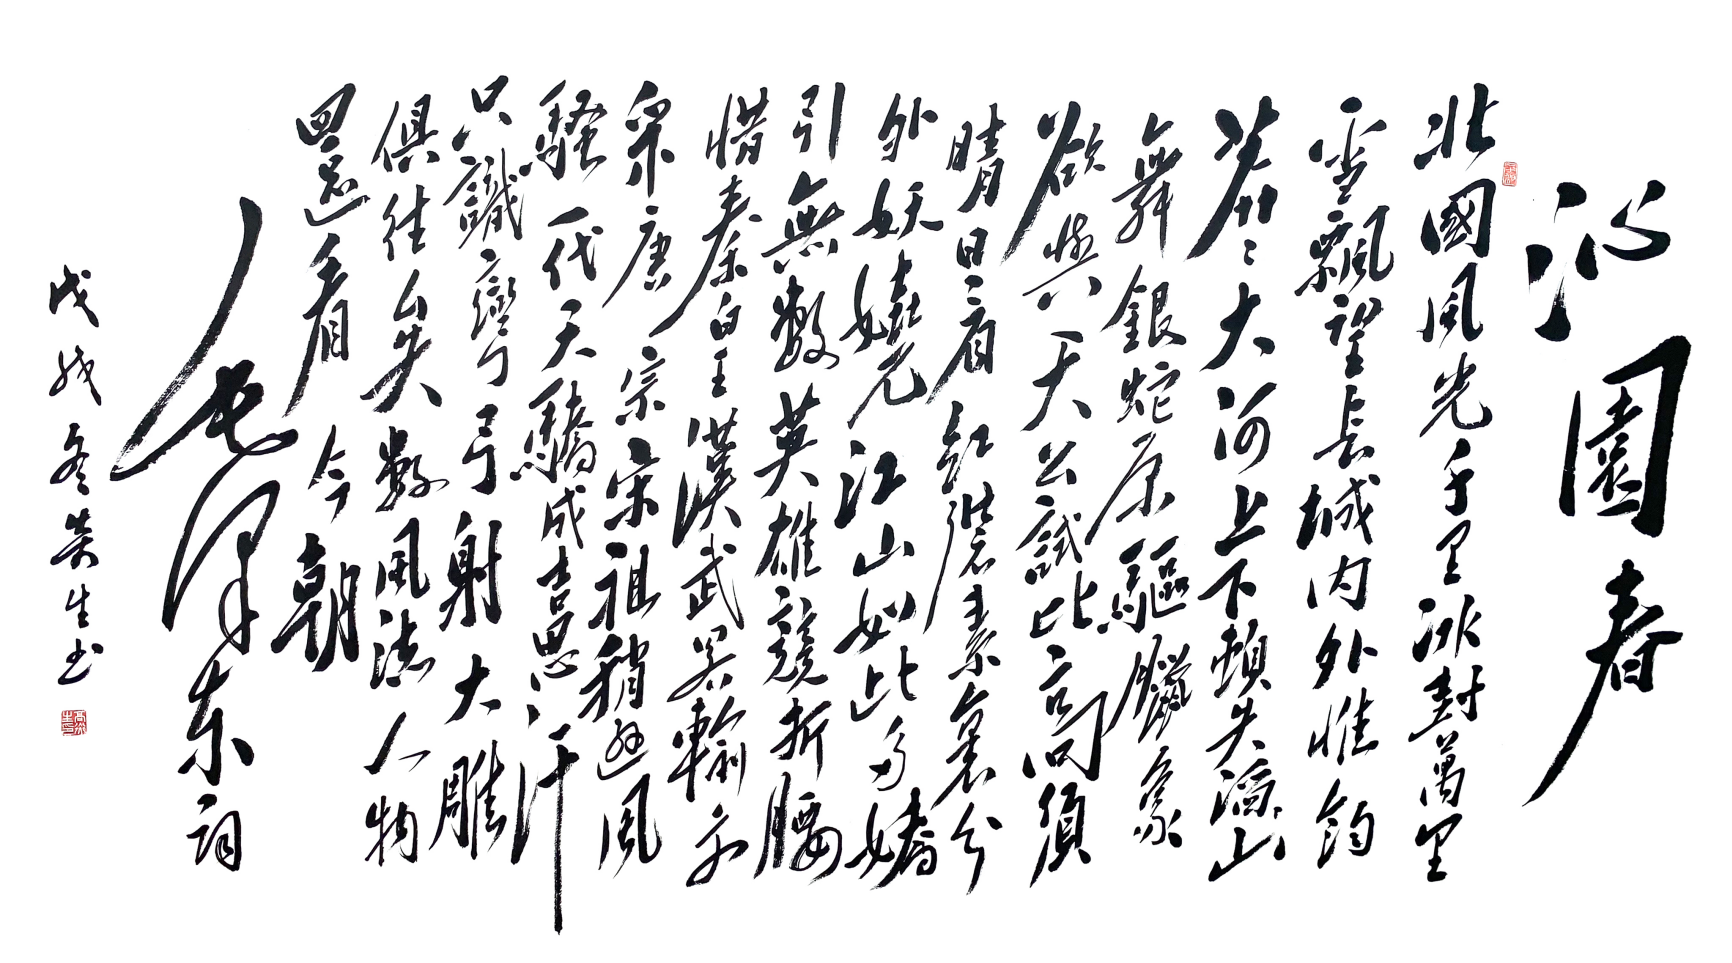 沁園春
北國風光千里冰封萬里
雪飄望長城内外惟餘
莽〻大河上下頓失滔〻山
舞銀蛇原驅臘象
欲與天公試比高須
晴日看紅裝素裹分
外妖嬈江山如此多嬌
引無數英雄競折腰
惜秦皇漢武畧輸文
采唐宗宋祖稍遜風
騷一代天驕成吉思汗
只識彎弓射大雕
俱往矣數風流人物
還看今朝
毛泽东词
戊戌冬生书